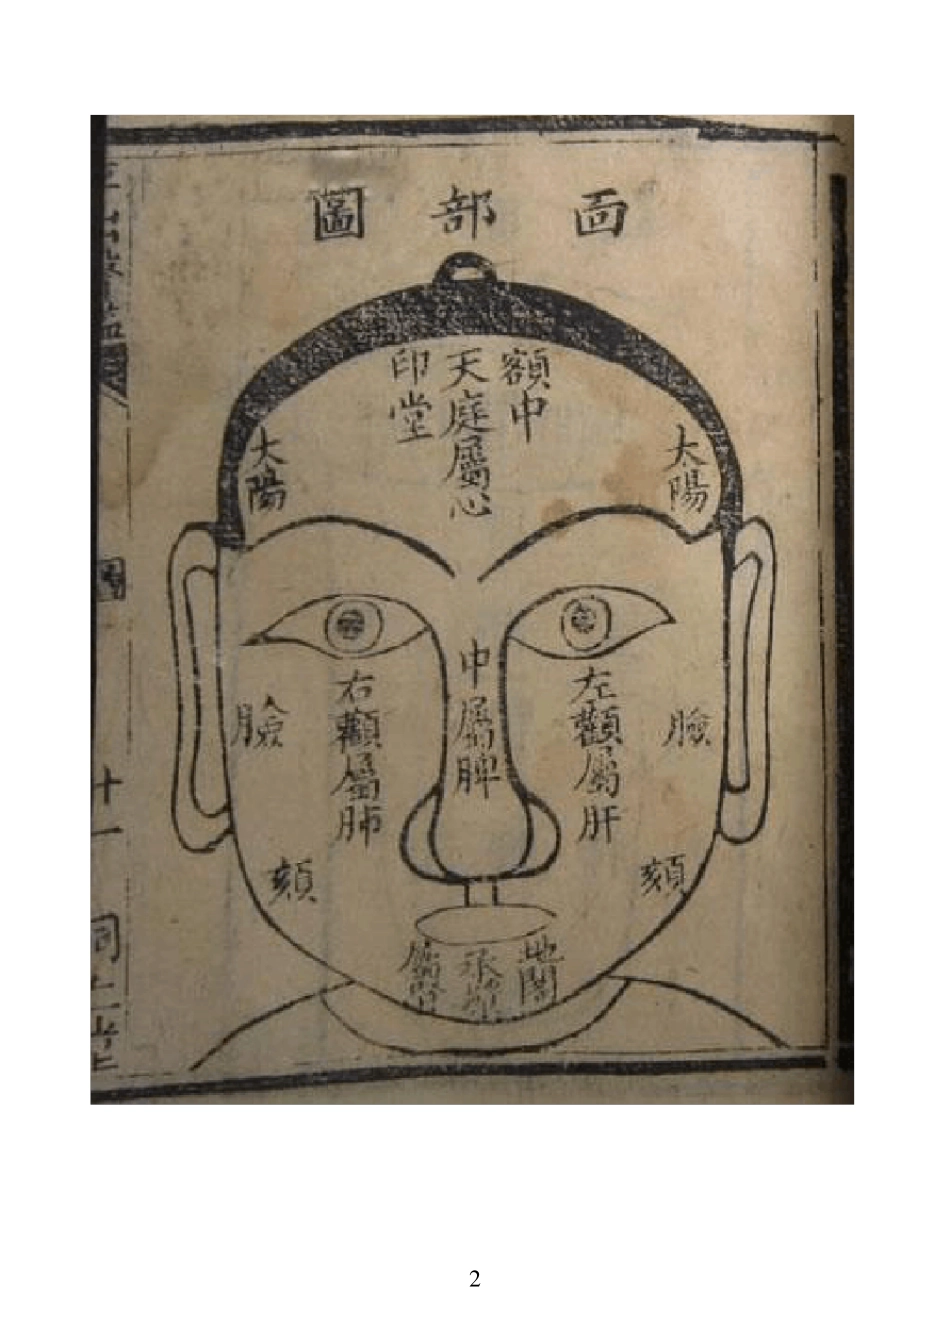 面部圖
額中
天庭屬心
印堂
太陽
太陽
中屬脾
左顴屬肝
右顴屬肺
臉
臉
頦
頦
地閣
承漿
屬腎
圖
十一
同仁堂
2